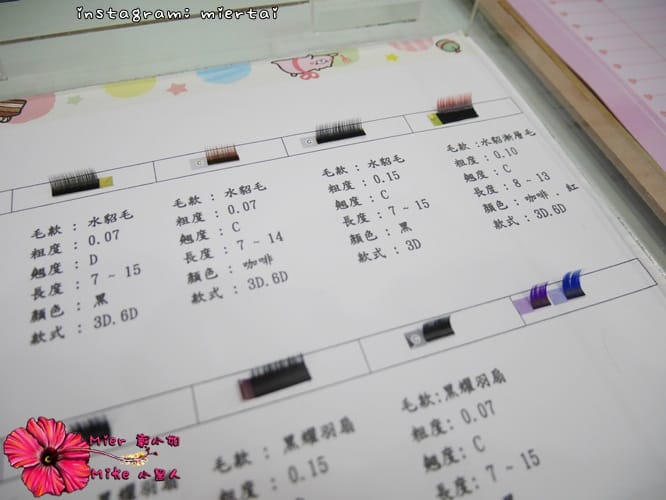 instagram: miertai
毛款 : 水貂毛
粗度 : 0.07
翹度 : D
長度 : 7 ~ 15
顏色 : 黑
款式 : 3D.6D
毛款 : 水貂毛
粗度 : 0.07
翹度 : C
長度 : 7 ~ 14
顏色 : 咖啡
款式 : 3D.6D
毛款 : 水貂毛
粗度 : 0.15
翹度 : C
長度 : 7 ~ 15
顏色 : 黑
款式 : 3D
毛款 : 水貂漸層毛
粗度 : 0.10
翹度 : C
長度 : 8 ~ 13
顏色 : 咖啡 . 紅
款式 : 3D.6D
黑耀羽扇
: 0.15
毛款:黑耀羽扇
粗度: 0.07
翹度: C
長度: 7 ~ 15
Mier
Mike 小星人